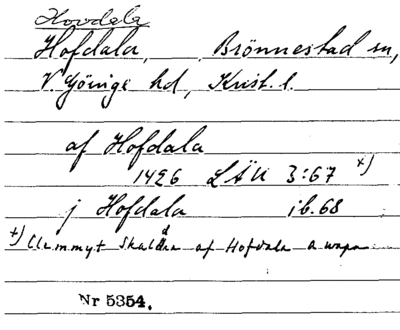 Hovdala
Hofdala, Brönnestad sn,
V. Göinge hd, Krist. l.
af Hofdala
1426 LÄU 3:67 x)
j Hofdala ib. 68
x) Clemmyt af Hofdala a wapn
Nr 5354.